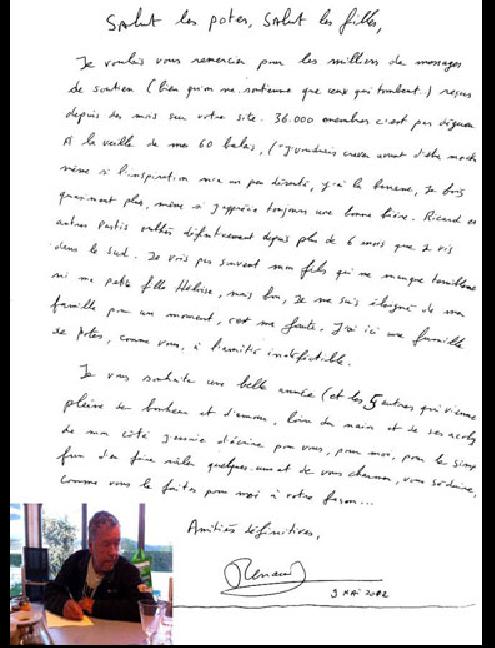 Salut les potes, salut les filles,
Je voulais vous remercier pour les milliers de messages
de soutien (bien qu'on ne soutienne que ceux qui tombent!) reçus
depuis des mois sur votre site. 36.000 membres c'est pas dégueu
A la veille de mes 60 balais, ("j'voudrais crever avant d'être moche
même si l'inspiration m'a un peu déserté, j'ai la banane, je bois
quasiment plus, même si j'apprécie toujours une bonne bière. Ricard et
autres Pastis oubliés définitivement depuis plus de 6 mois que je vis
dans le sud. Je vois pas souvent mon fils qui me manque terriblem
ni ma petite fille Héloïse, mais bon, je me suis éloigné de ma
famille pour un moment, c'est ma faute. J'ai ici une famille
de potes, comme vous, à l'amitié indéfectible.
Je vous souhaite une belle année (et les 5 autres qui vienne
pleine de bonheur et d'amour, loin du nain et de ses acoly
de mon côté j'essaie d'écrire pour vous, pour moi, pour le simp
fun d'en faire râler quelques-uns et de vous charmer, vous séduire,
comme vous le faites pour moi à votre façon...
Amitiés définitives,
Renaud
9 MAI 2012